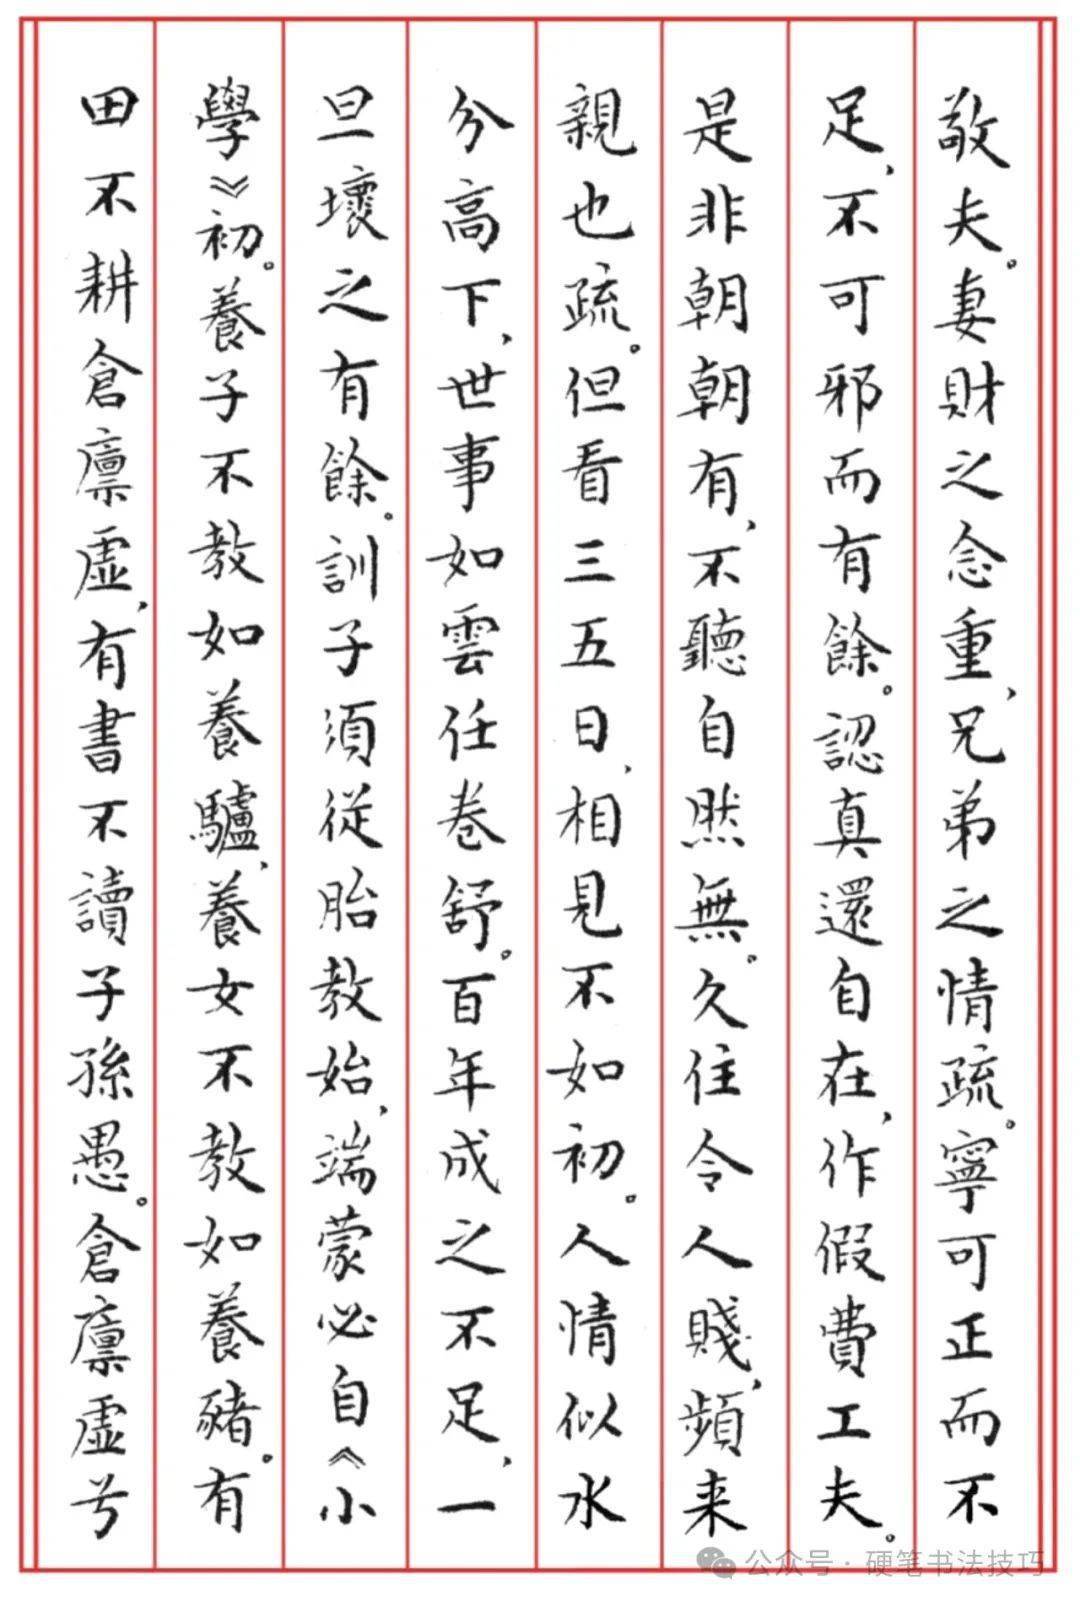 敬夫。妻財之念重，兄弟之情疏。寧可正而不
足，不可邪而有餘。認真還自在，作假費工夫。
是非朝朝有，不聽自然無。久住令人賤，頻来
親也疏。但看三五日，相見不如初。人情似水
分高下，世事如雲任卷舒。百年成之不足，一
旦壞之有餘。訓子須從胎教始，端蒙必自《小
學》初。養子不教如養驢，養女不教如養豬。有
田不耕倉廩虛，有書不讀子孫愚。倉廩虛兮
公众号·硬笔书法技巧